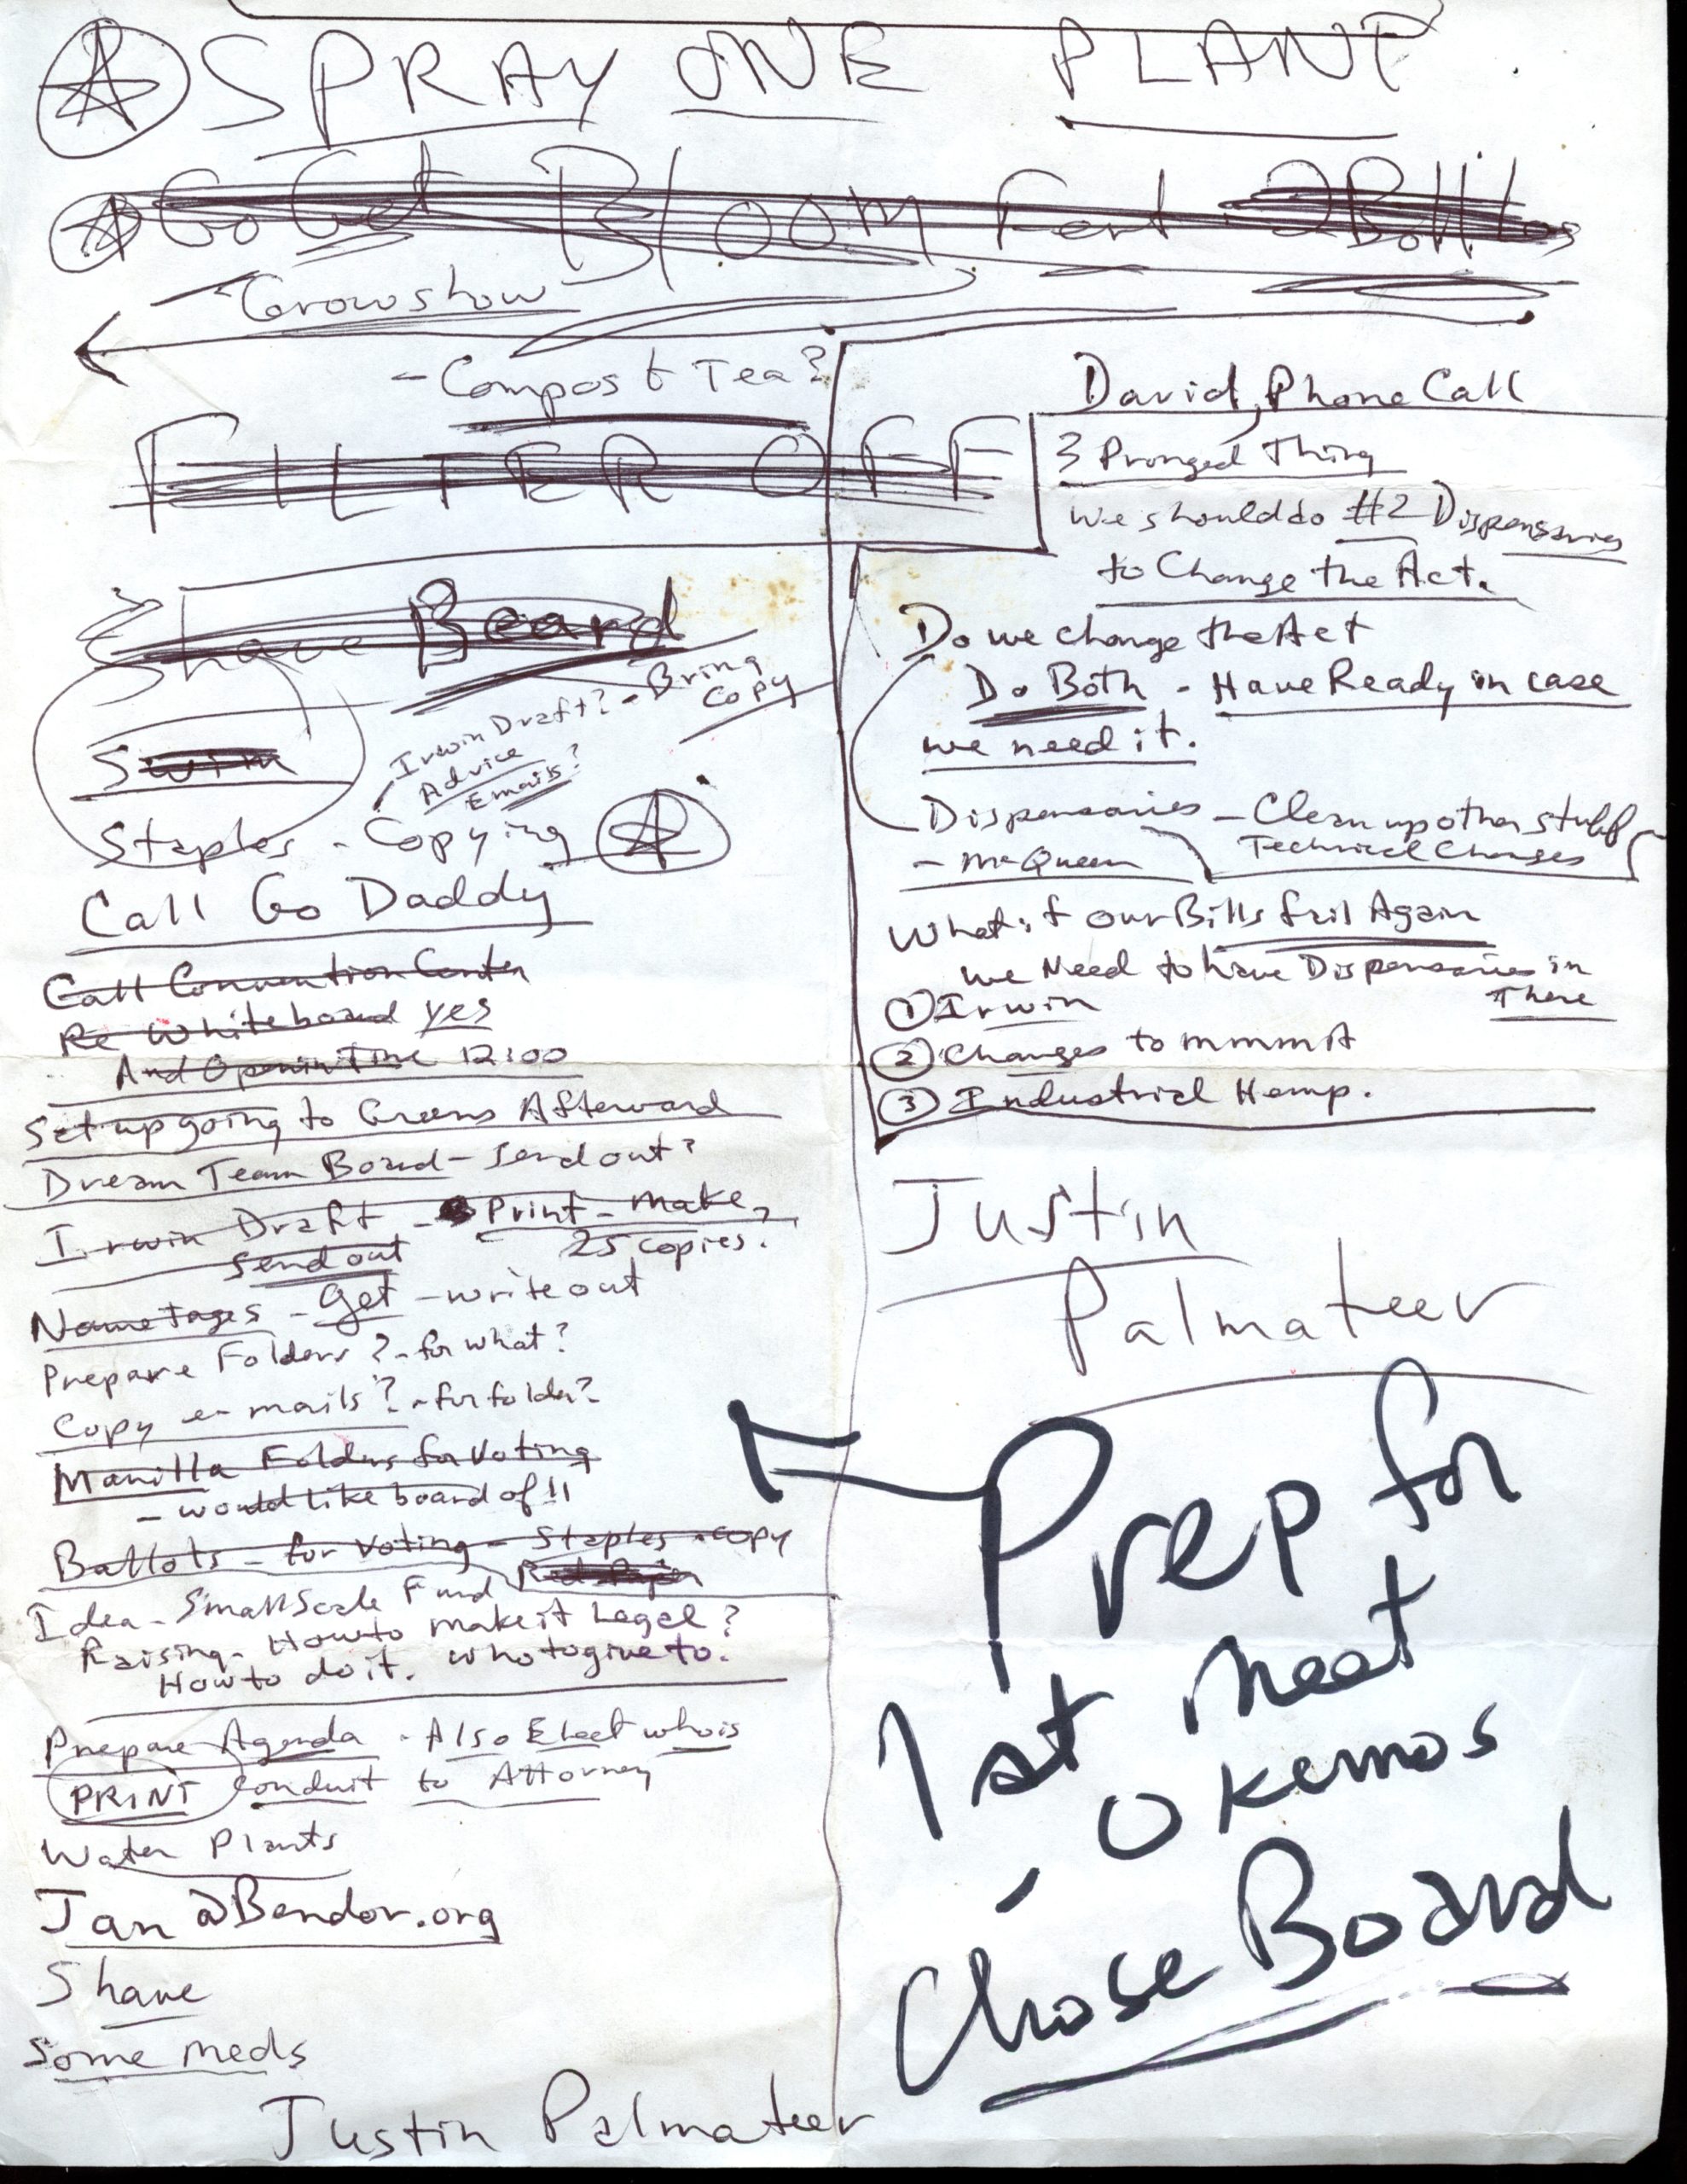 SPRAY ONE PLANT
Go Get Bloom Fert - 2 Bottles
- Growshow
- Compost Tea?
FILTER OFF
Shave Beard
Swim
Irwin Draft? - Bring
Copy
Advice
Emails?
Staples - Copying
Call Go Daddy
Call Convention Center
Re Whiteboard yes
And Openin Time 12:00
Set up going to Greens Afterward
Dream Team Board - Send out?
Irwin Draft - Print - make
25 copies.
Send out
Nametages - get - write out
Prepare Folders? - for what?
Copy e-mails? - for folder?
Manilla Folders for Voting
- would like board of !!
Ballots - for voting - Staples - copy
Idea - Small Scale Fund
Raising - How to make it Legal?
How to do it. who to give to.
Prepare Agenda - Also Elect who is
PRINT Conduit to Attorney
Water Plants
Jan@Bendor.org
Shave
Some meds
Justin Palmateer
David, Phone Call
3 Pronged Thing
we should do #2 Dispensaries
to Change the Act.
Do we change the Act
Do Both - Have Ready in case
we need it.
Dispensaries - Clean up other stuff
Technical Changes
- McQueen
What if our Bills fail Again
we Need to have Dispensaries in
There
① Irwin
② Changes to mmmA
③ Industrial Hemp.
Justin
Palmateer
Prep for
1st meet
- Okemos
Chose Board